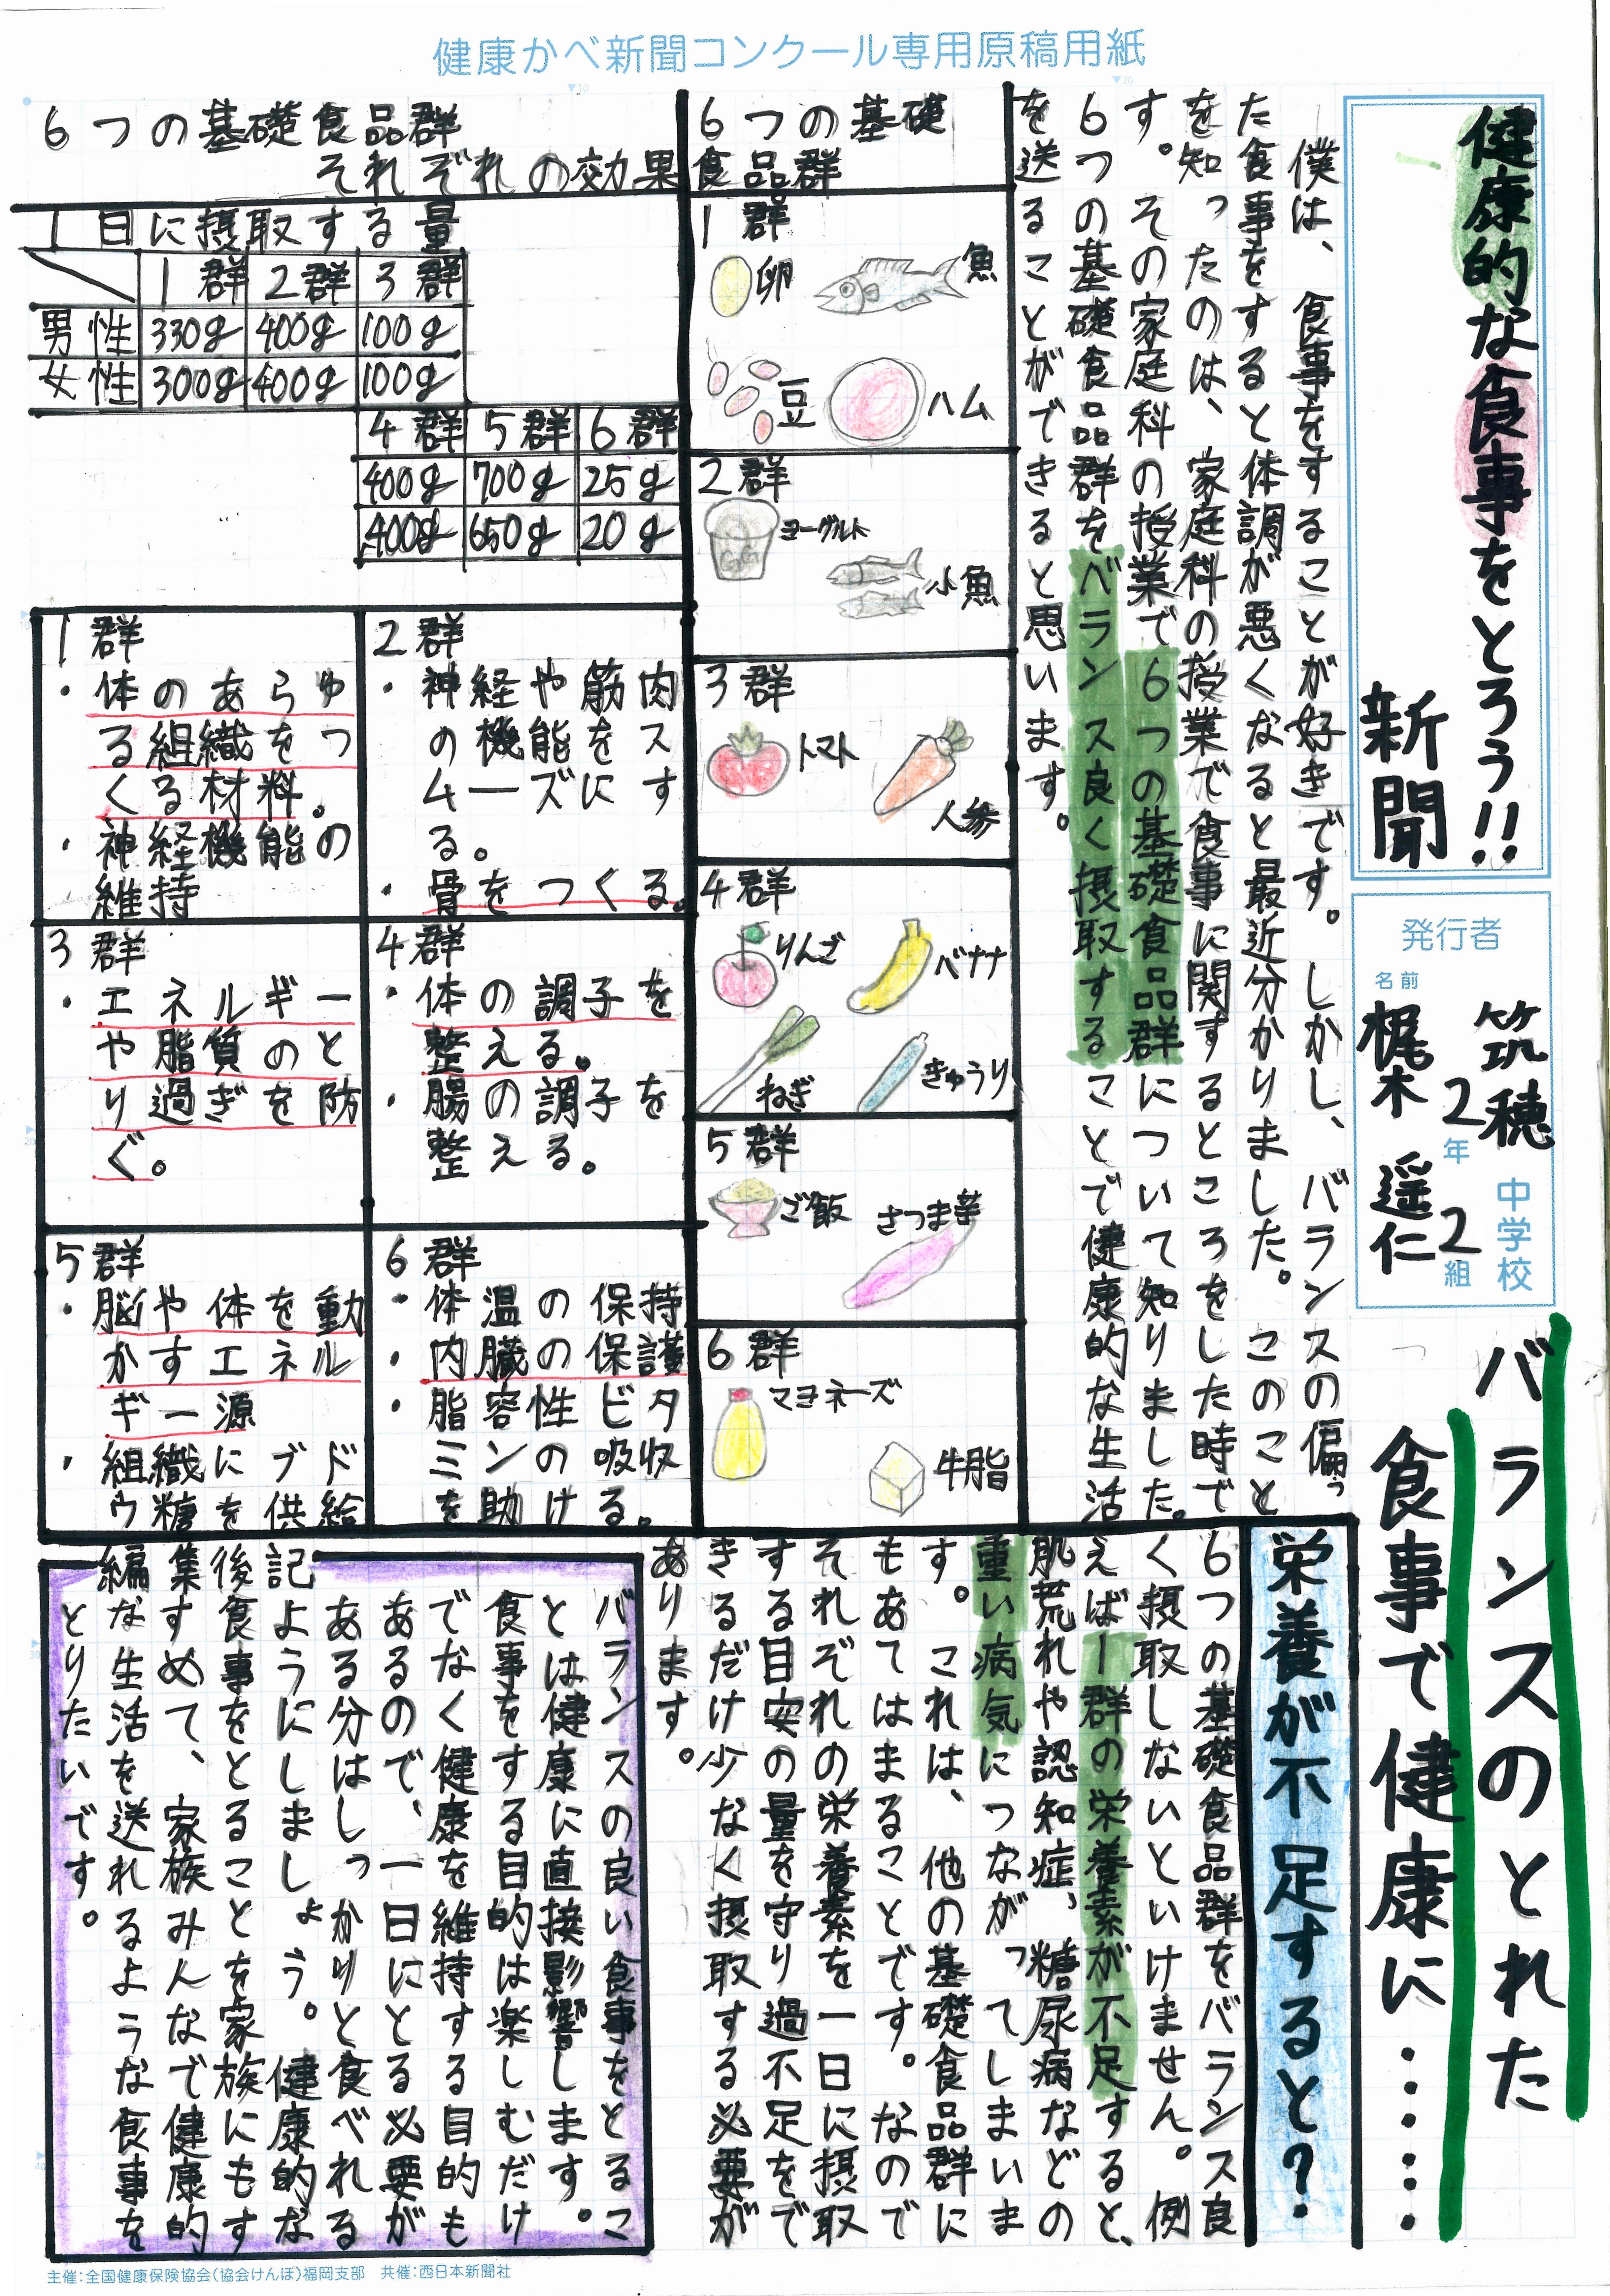 健康かべ新聞コンクール専用原稿用紙
健康的な食事をとろう!!
新聞
発行者
筑穂中学校
2年2組
名前
梶木遥仁
バランスのとれた
食事で健康に……
僕は、食事をすることが好きです。しかし、バランスの偏っ
た食事をすると体調が悪くなると最近分かりました。このこと
を知ったのは、家庭科の授業で食事に関するところをした時で
す。その家庭科の授業で6つの基礎食品群について知りました。
6つの基礎食品群をバランス良く摂取することで健康的な生活
を送ることができると思います。
6つの基礎
食品群
1群
卵
魚
豆
ハム
2群
ヨーグルト
小魚
3群
トマト
人参
4群
りんご
バナナ
ねぎ
きゅうり
5群
ご飯
さつま芋
6群
マヨネーズ
牛脂
6つの基礎食品群
それぞれの効果
1日に摂取する量
1群 2群 3群
男性 330g 400g 100g
女性 300g 400g 100g
4群 5群 6群
400g 700g 25g
400g 650g 20g
1群
・体のあらゆ
る組織をつ
くる材料。
・神経機能の
維持
2群
・神経や筋肉
の機能をス
ムーズにす
る。
・骨をつくる。
3群
・エネルギー
や脂質のと
り過ぎを防
ぐ。
4群
・体の調子を
整える。
・腸の調子を
整える。
5群
・脳や体を動
かすエネル
ギー源
・組織にブド
ウ糖を供給
6群
・体温の保持
・内臓の保護
・脂容性ビタ
ミンの吸収
を助ける。
栄養が不足すると?
6つの基礎食品群をバランス良
く摂取しないといけません。例
えば1群の栄養素が不足すると、
肌荒れや認知症、糖尿病などの
重い病気につながってしまいま
す。これは、他の基礎食品群に
もあてはまることです。なので
それぞれの栄養素を一日に摂取
する目安の量を守り過不足をで
きるだけ少なく摂取する必要が
あります。
編集後記
バランスの良い食事をとるこ
とは健康に直接影響します。
食事をする目的は楽しむだけ
でなく健康を維持する目的も
あるので、一日にとる必要が
ある分はしっかりと食べれる
ようにしましょう。健康的な
食事をとることを家族にもす
すめて、家族みんなで健康的
な生活を送れるような食事を
とりたいです。
主催:全国健康保険協会(協会けんぽ)福岡支部 共催:西日本新聞社